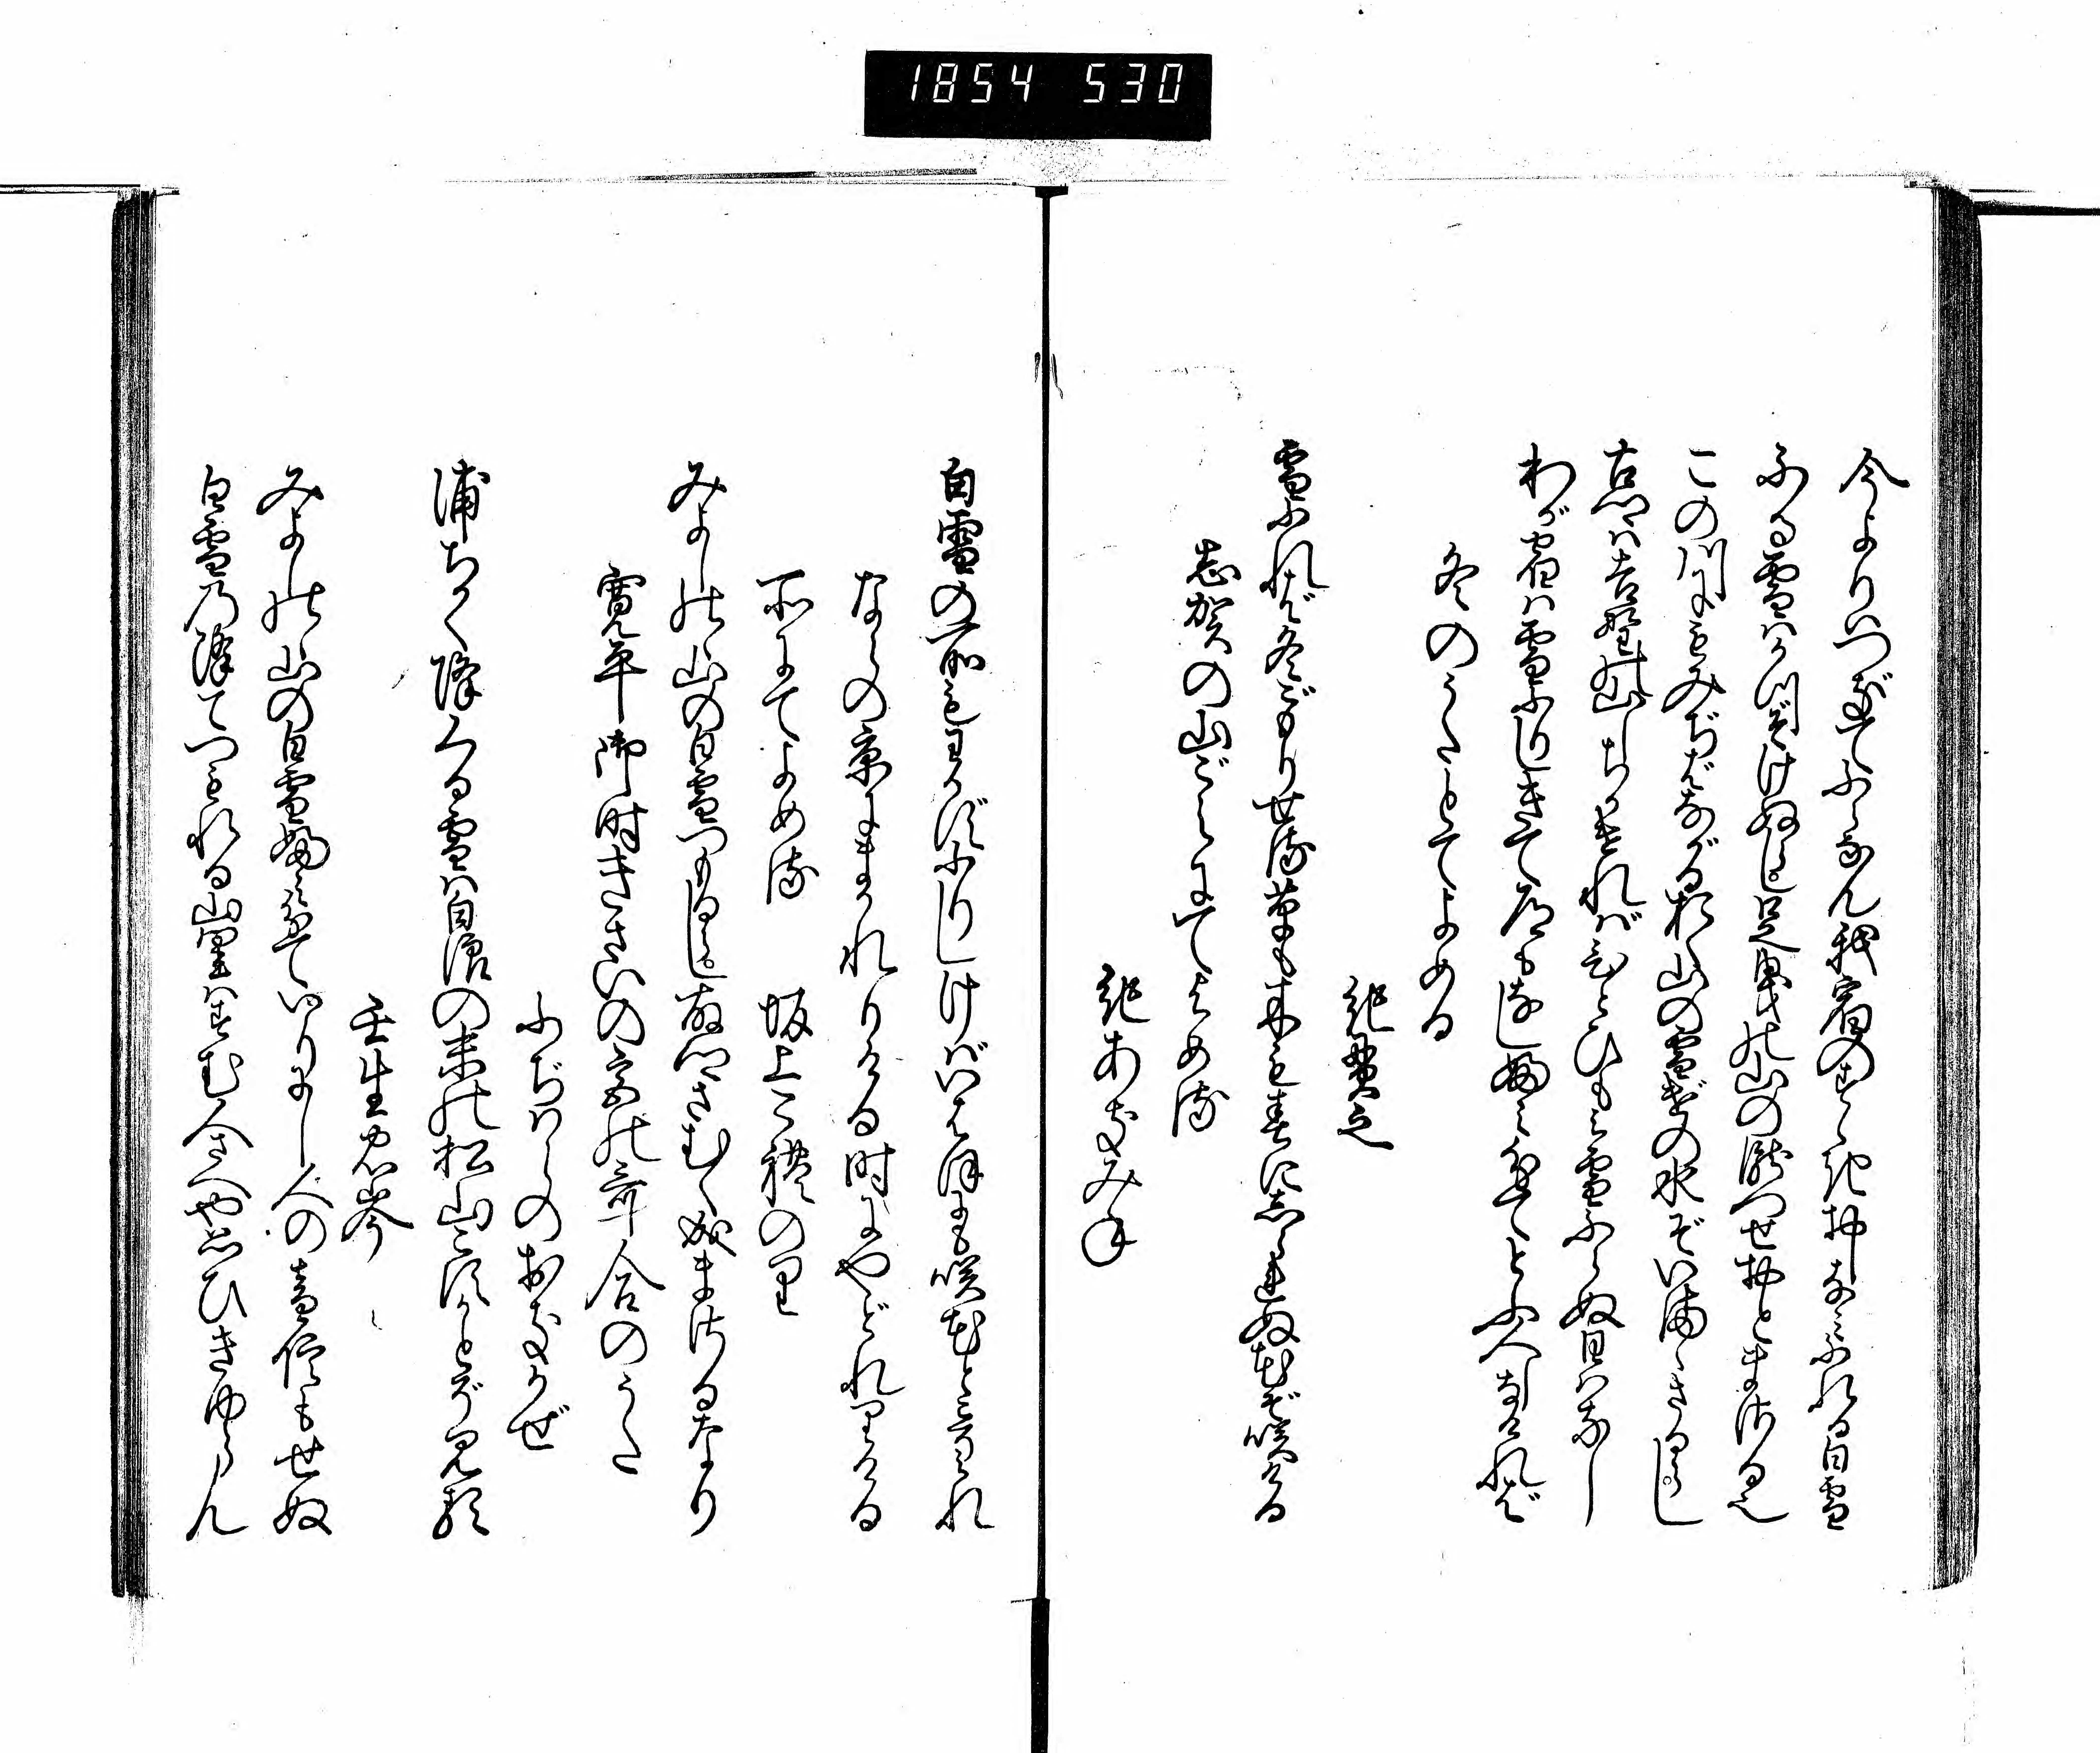 1854 530
今よりはつぎてふらなん我宿のすゝきおしなみふれる白雪
ふる雪はかつぞけぬらし足曳の山の瀧つせおとまさる也
この川にもみぢばながるおく山の雪げの水ぞいまゝさるらし
古郷は吉野の山しちかければひとひもみ雪ふらぬ日はなし
わが宿は雪ふりしきて道もなしふみわけてとふ人しなければ
冬のうたとてよめる
紀貫之
雪ふれば冬ごもりせる草も木も春に志られぬ花ぞ咲ける
志賀の山ごえにてよめる
紀あきみね
白雪の所もわかずふりしけばいはほにも咲花とこそみれ
ならの京にまかれりける時にやどれりける
所にてよめる
坂上これのり
みよしのゝ山の白雪つもるらし故郷さむく成まさるなり
寛平御時きさいの宮の哥合のうた
ふぢはらのおきかぜ
浦ちかく降くる雪は白浪の末の松山こすかとぞ見る
壬生忠岑
みよしのゝ山の白雪ふみ分ていりにし人の音信もせぬ
白雪の降てつもれる山里はすむ人さへや思ひきゆらん